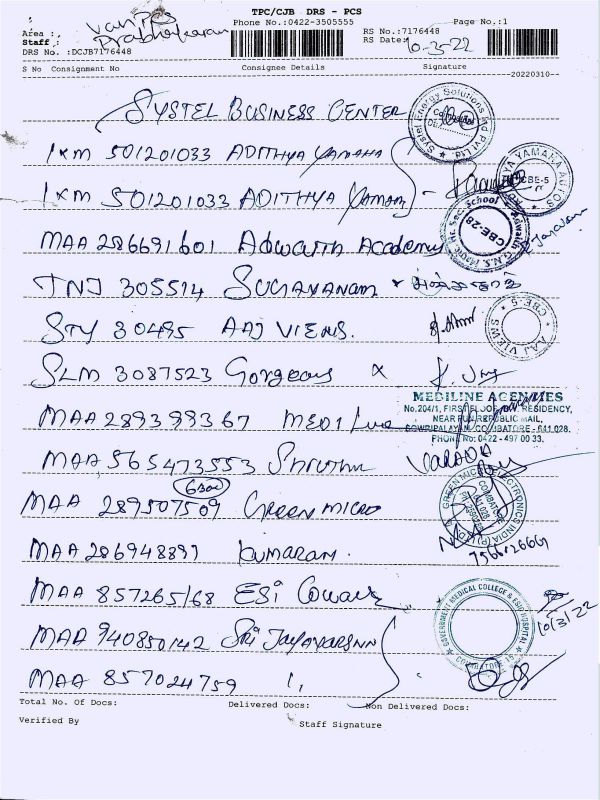 TPC/CJB DRS - PCS
Area :
Phone No.:0422-3505555
Page No.:1
Staff : Prabhakaran
RS No.:7176448
DRS No. :DCJB7176448
RS Date: 10-3-22
S No Consignment No Consignee Details Signature
20220310
SYSTEL BUSINESS CENTER
IXM 501201033 ADITHYA YAMAHA
IXM 501201033 ADITHYA Yamaha
MAA 286691601 Adwaith Academy
TNJ 305514 SUGAVANAM
STY 30495 AAJ VIEWS.
SLM 3087523 Gorgeous
MAA 289399367 MEDI Line
MEDILINE AGENCIES
No.204/1, FIRST FLOOR, RESIDENCY,
NEAR FUN REPUBLIC MAIL,
GOWRIPALAYAM, COIMBATORE - 641 028.
PHONE No: 0422 - 497 00 33.
MAA 565473553 Shruthi
VARADA
MAA 289507509 GREEN MICRO
MAA 286948897 Kumaran.
7566126661
MAA 857265168 ESI
GOVERNMENT MEDICAL COLLEGE & ESIC HOSPITAL
COIMBATORE-15
10/3/22
MAA 940850142 Sri
MAA 857024759 ''
Total No. Of Docs: Delivered Docs: Non Delivered Docs:
Verified By Staff Signature